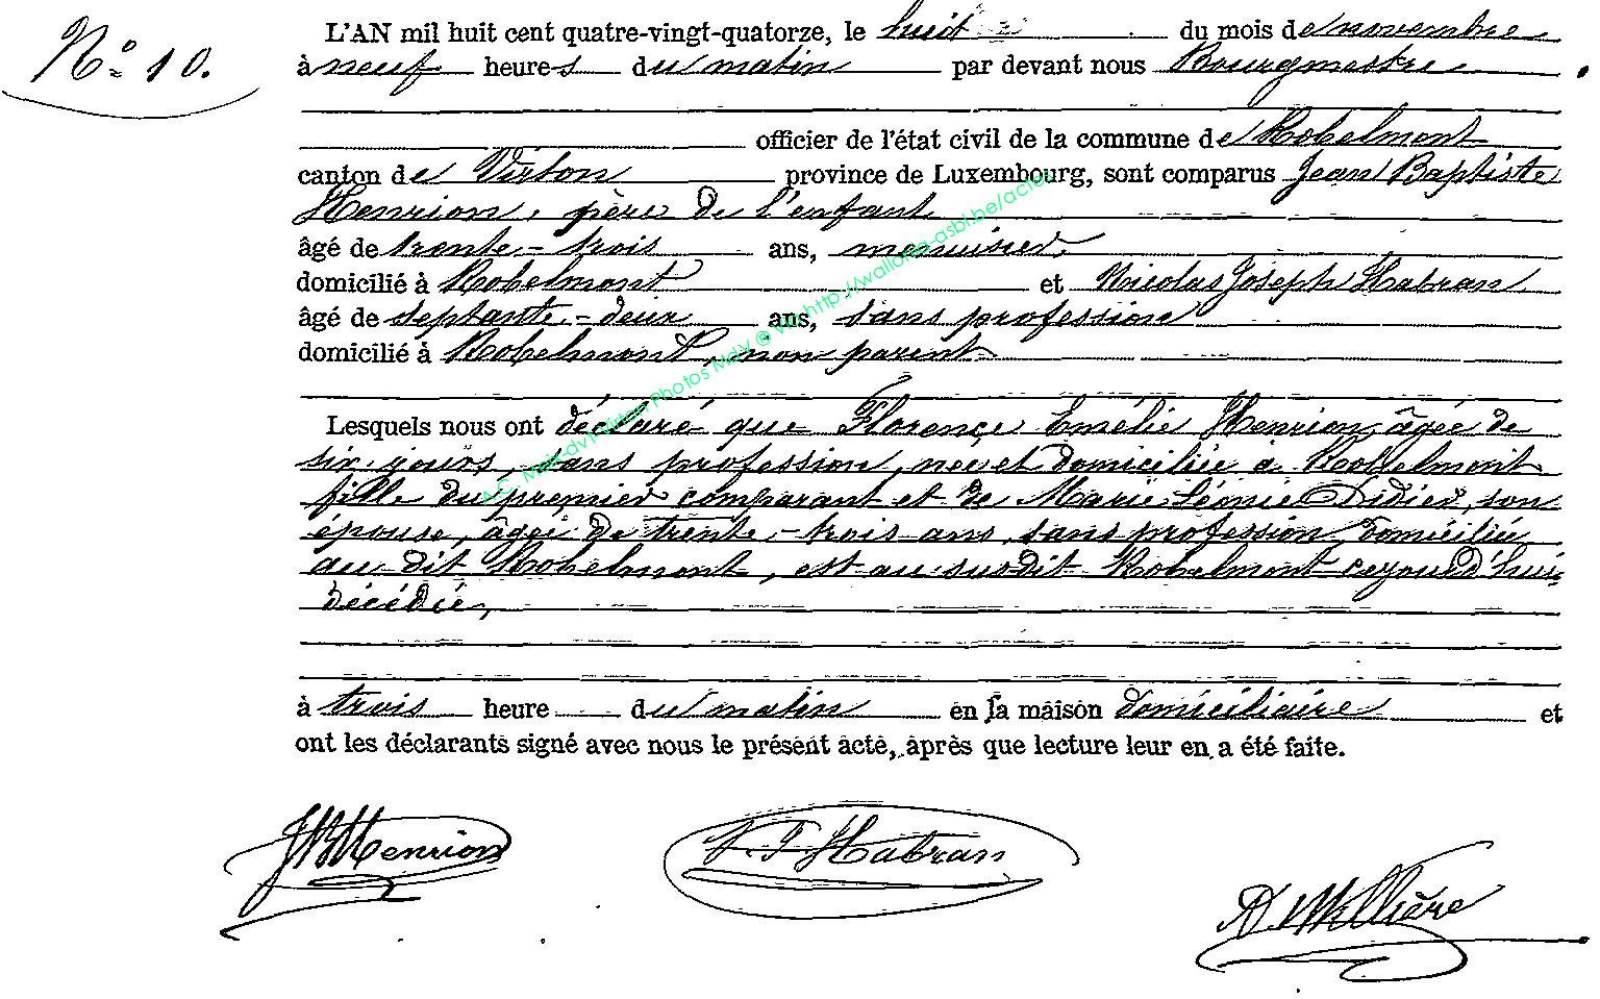 N° 10.
L'AN mil huit cent quatre-vingt-quatorze, le huit du mois de novembre
à neuf heures du matin par devant nous Bourgmestre
officier de l'état civil de la commune de Robelmont
canton de Virton province de Luxembourg, sont comparus Jean Baptiste
Henrion, père de l'enfant
âgé de trente-trois ans, menuisier,
domicilié à Robelmont et Nicolas Joseph Habran
âgé de septante-deux ans, sans profession
domicilié à Robelmont, non parent
Lesquels nous ont déclaré que Florence Emélie Henrion, âgée de
six jours, sans profession, née et domiciliée à Robelmont
fille du premier comparant et de Marie Léonie Didier, son
épouse, âgée de trente-trois ans, sans profession, domiciliée
au dit Robelmont, est au susdit Robelmont cejourd'hui
décédée,
à trois heure du matin en la maison domiciliaire et
ont les déclarants signé avec nous le présent acte, après que lecture leur en a été faite.
JBHenrion
N. J. Habran